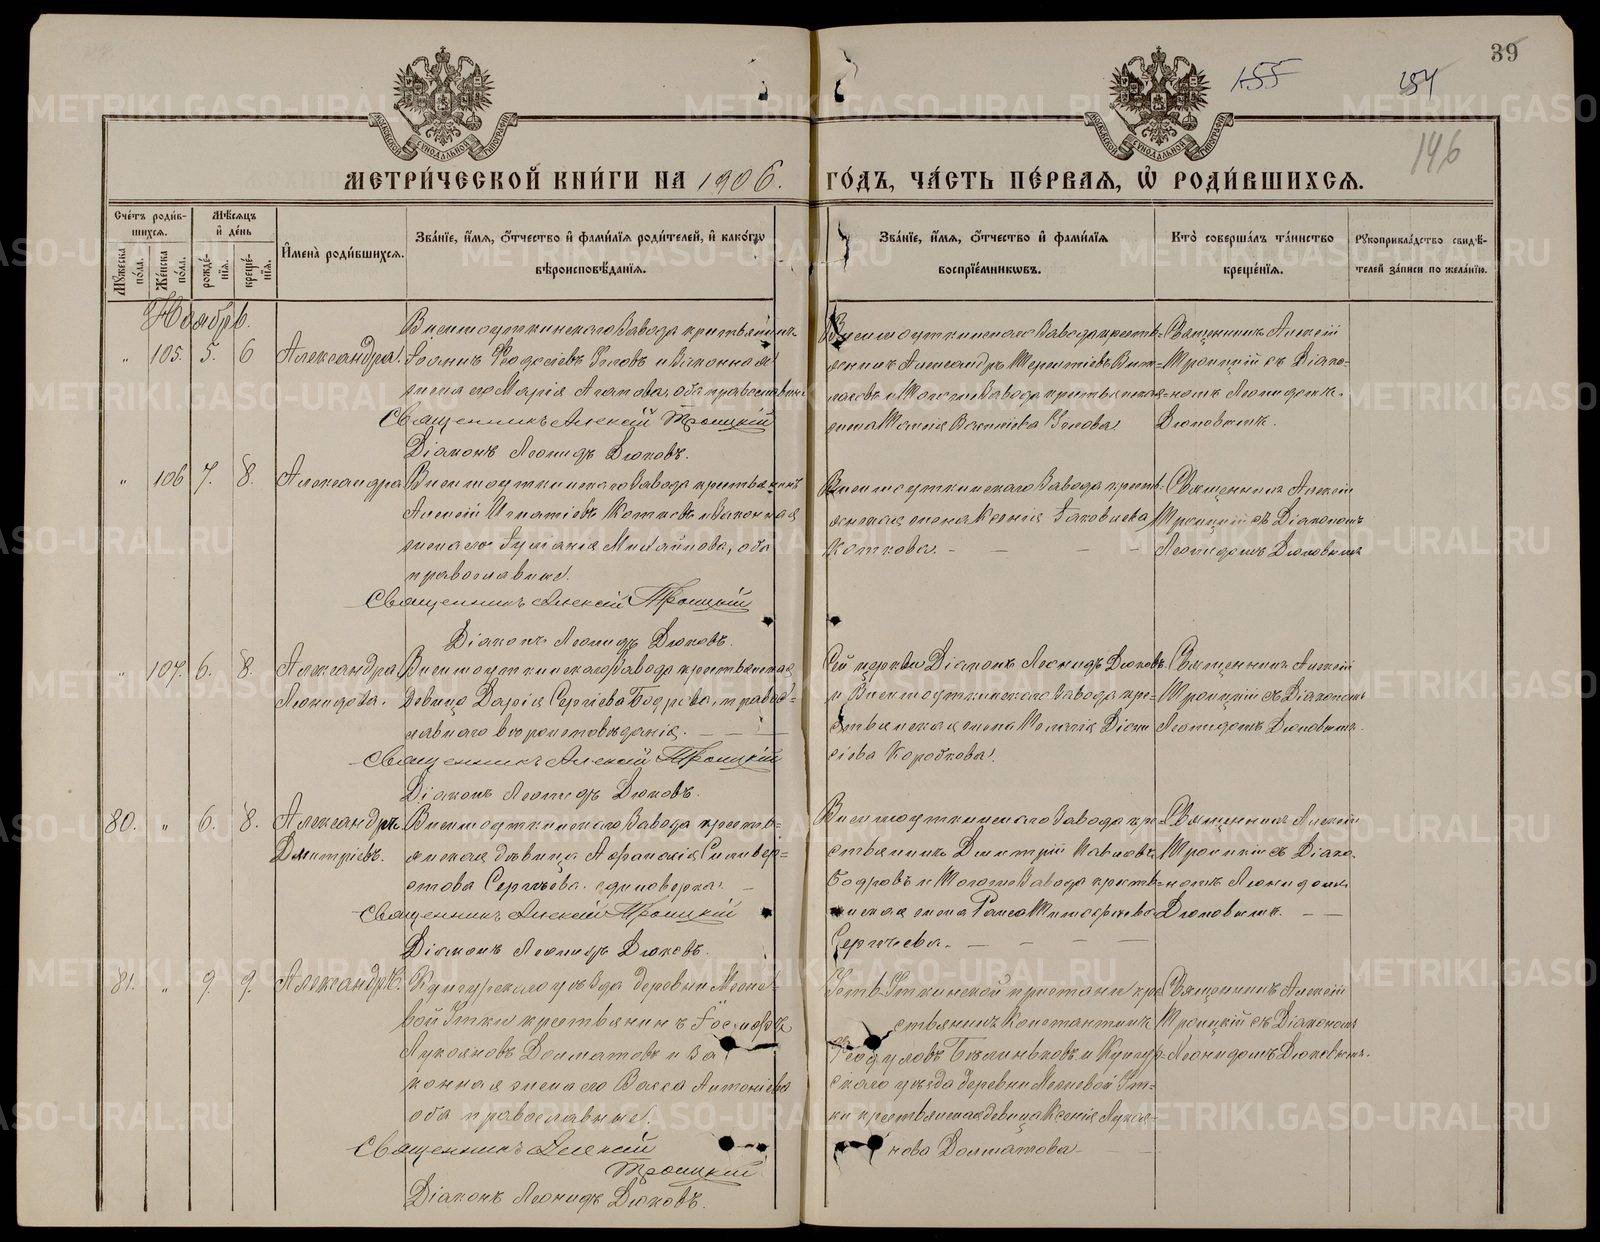 39
155
154
146
МЕТРИ́ЧЕСКОЙ КНИ́ГИ НА 1906.
ГО́ДЪ, ЧА́СТЬ ПЕ́РВАЯ, Ѿ РОДИ́ВШИХСЯ.
Сче́тъ роди́в-
шихся.
Мѣ́сяцъ
и де́нь
Мꙋ́жеска по́ла.
Же́нска по́ла.
рожде́-
нїя.
креще́-
нїя.
И́мена роди́вшихся.
Зва́нїе, и́мя, о́тчество и фами́лїя роди́телей, и како́гѡ
вѣроисповѣ́данїя.
Зва́нїе, и́мя, о́тчество и фами́лїя
воспрїе́мникѡвъ.
Кто̀ соверша́лъ та́инство
креще́нїя.
Рꙋкоприкла́дство свидѣ́-
телей за́писи по жела́нїю.
Ноябрь.
" 105. 5. 6 Александра.
Висимоуткинскаго Завода крестьянинъ
Іоаннъ Ѳедосіевъ Угловъ и Законная
жена его Марія Агапова, оба православные
Священникъ Алексій Троицкій
Діаконъ Леонидъ Дюковъ.
Висимоуткинскаго Завода кресть-
янинъ Александръ Терентіевъ
и того же Завода крестьянская
жена Васильева Углова
Священникъ Алексій
Троицкій съ Діако-
номъ Леонидомъ
Дюковымъ.
" 106 7. 8. Александра
Висимоуткинскаго Завода крестьянинъ
Алексій Игнатіевъ Котковъ и Законная
жена его Іуліанія Михайлова, оба
православные.
Священникъ Алексій Троицкій
Діаконъ Леонидъ Дюковъ.
Висимоуткинскаго Завода кресть-
янская жена Ксенія Іаковлева
Коткова.
Священникъ Алексій
Троицкій съ Діакономъ
Леонидомъ Дюковымъ
" 107. 6. 8. Александра
Леонидова.
Висимоуткинскаго Завода крестьянская
девица Дарія Сергіева Бодрова, правос-
лавнаго вероисповеданія.
Священникъ Алексій Троицкій
Діаконъ Леонидъ Дюковъ.
Сей церкви Діаконъ Леонидъ Дюковъ
и Висимоуткинскаго Завода кре-
стьянская жена Пелагія Діони
сіева Коробкова.
Священникъ Алексій
Троицкій съ Діакономъ
Леонидомъ Дюковымъ.
80. " 6. 8. Александръ
Димитріевъ.
Висимоуткинскаго Завода кресть-
янская девица Аѳанасія Силивер-
стова Сергеева. единоверка.
Священникъ Алексій Троицкій
Діаконъ Леонидъ Дюковъ.
Висимоуткинскаго Завода кре-
стьянинъ Димитрій Павловъ
Бодровъ и того же Завода кресть-
янская жена Раиса
Сергеева.
Священникъ Алексій
Троицкій съ Діако-
номъ Леонидомъ
Дюковымъ.
81. " 9. 9. Александръ.
Кунгурскаго уезда деревни
вой Утки крестьянинъ Іосифъ
Лукояновъ Долматовъ и За
конная жена его Васса Антоніева
оба православные.
Священникъ Алексій
Троицкій
Діаконъ Леонидъ Дюковъ.
Усть-Уткинской пристани кре
стьянинъ Константинъ
Ѳеодуловъ и Кунгур-
скаго уезда деревни Ут-
ки крестьянская девица Ксенія Лукоя-
нова Долматова
Священникъ Алексій
Троицкій съ Діакономъ
Леонидомъ Дюковымъ.
METRIKI.GASO-URAL.RU